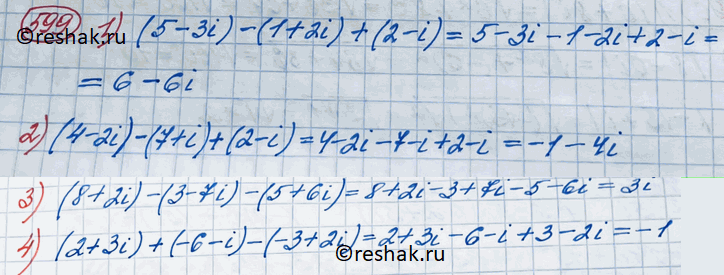 599 1) (5-3i)-(1+2i)+(2-i)=5-3i-1-2i+2-i=
©reshak.ru
=6-6i
2) (4-2i)-(7+i)+(2-i)=4-2i-7-i+2-i=-1-4i
3) (8+2i)-(3-7i)-(5+6i)=8+2i-3+7i-5-6i=3i
4) (2+3i)+(-6-i)-(-3+2i)=2+3i-6-i+3-2i=-1
©reshak.ru